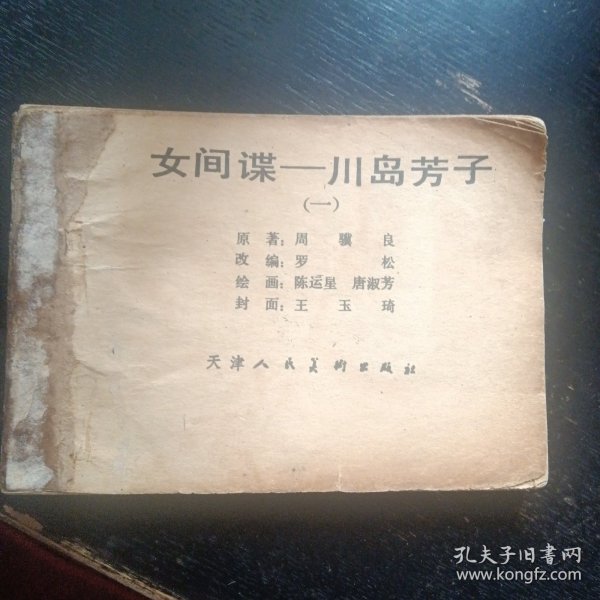 女间谍—川岛芳子
(一)
原 著：周 骥 良
改 编：罗 松
绘 画：陈运星 唐淑芳
封 面：王 玉 琦
天津人民美术出版社
孔夫子旧书网
www.kongfz.com